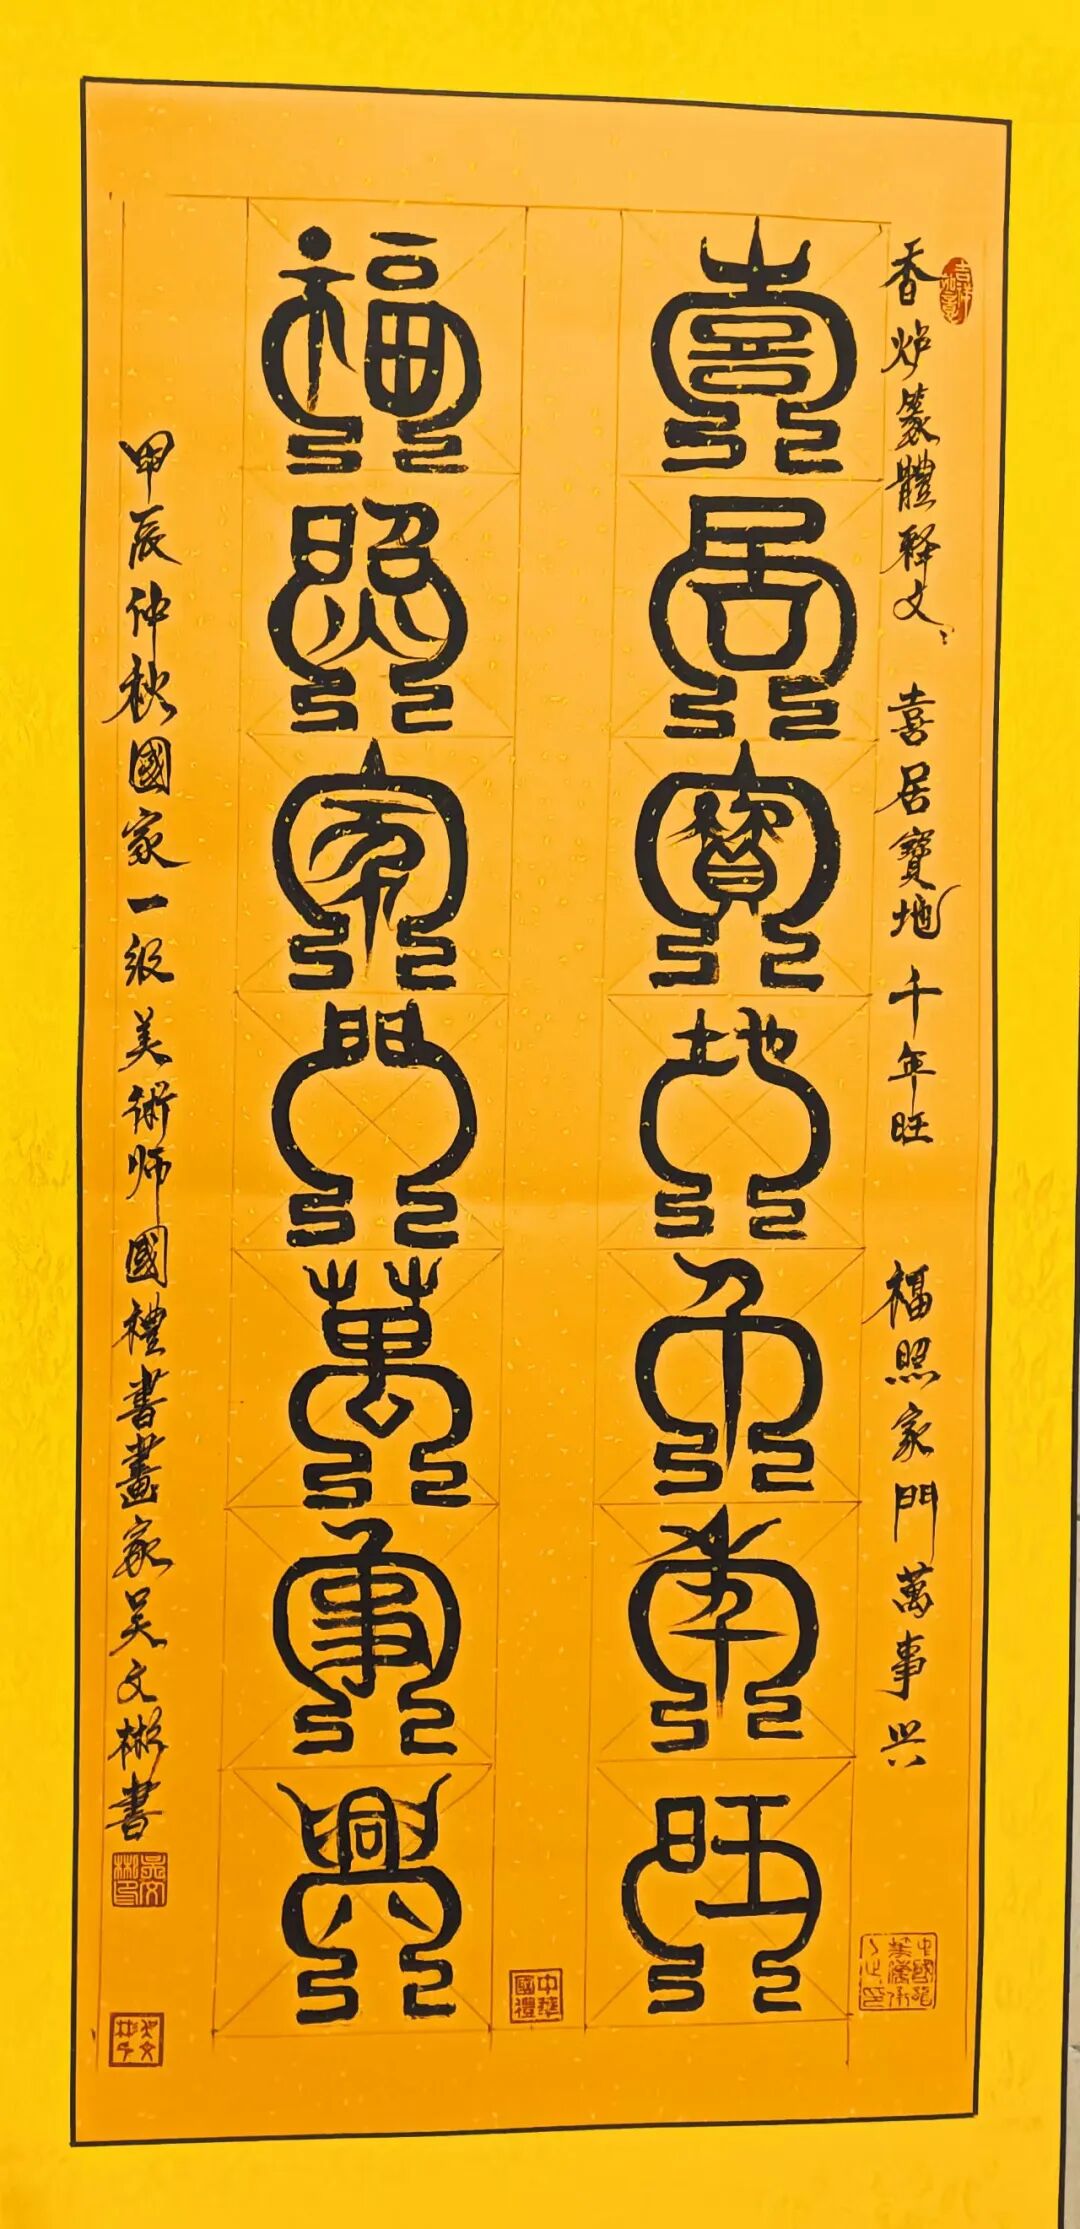 香炉篆體释文：喜居寶地千年旺 福照家門萬事兴
喜居寶地千年旺
福照家門萬事興
甲辰仲秋國家一级美術师國禮書畫家吴文彬書
中華國禮